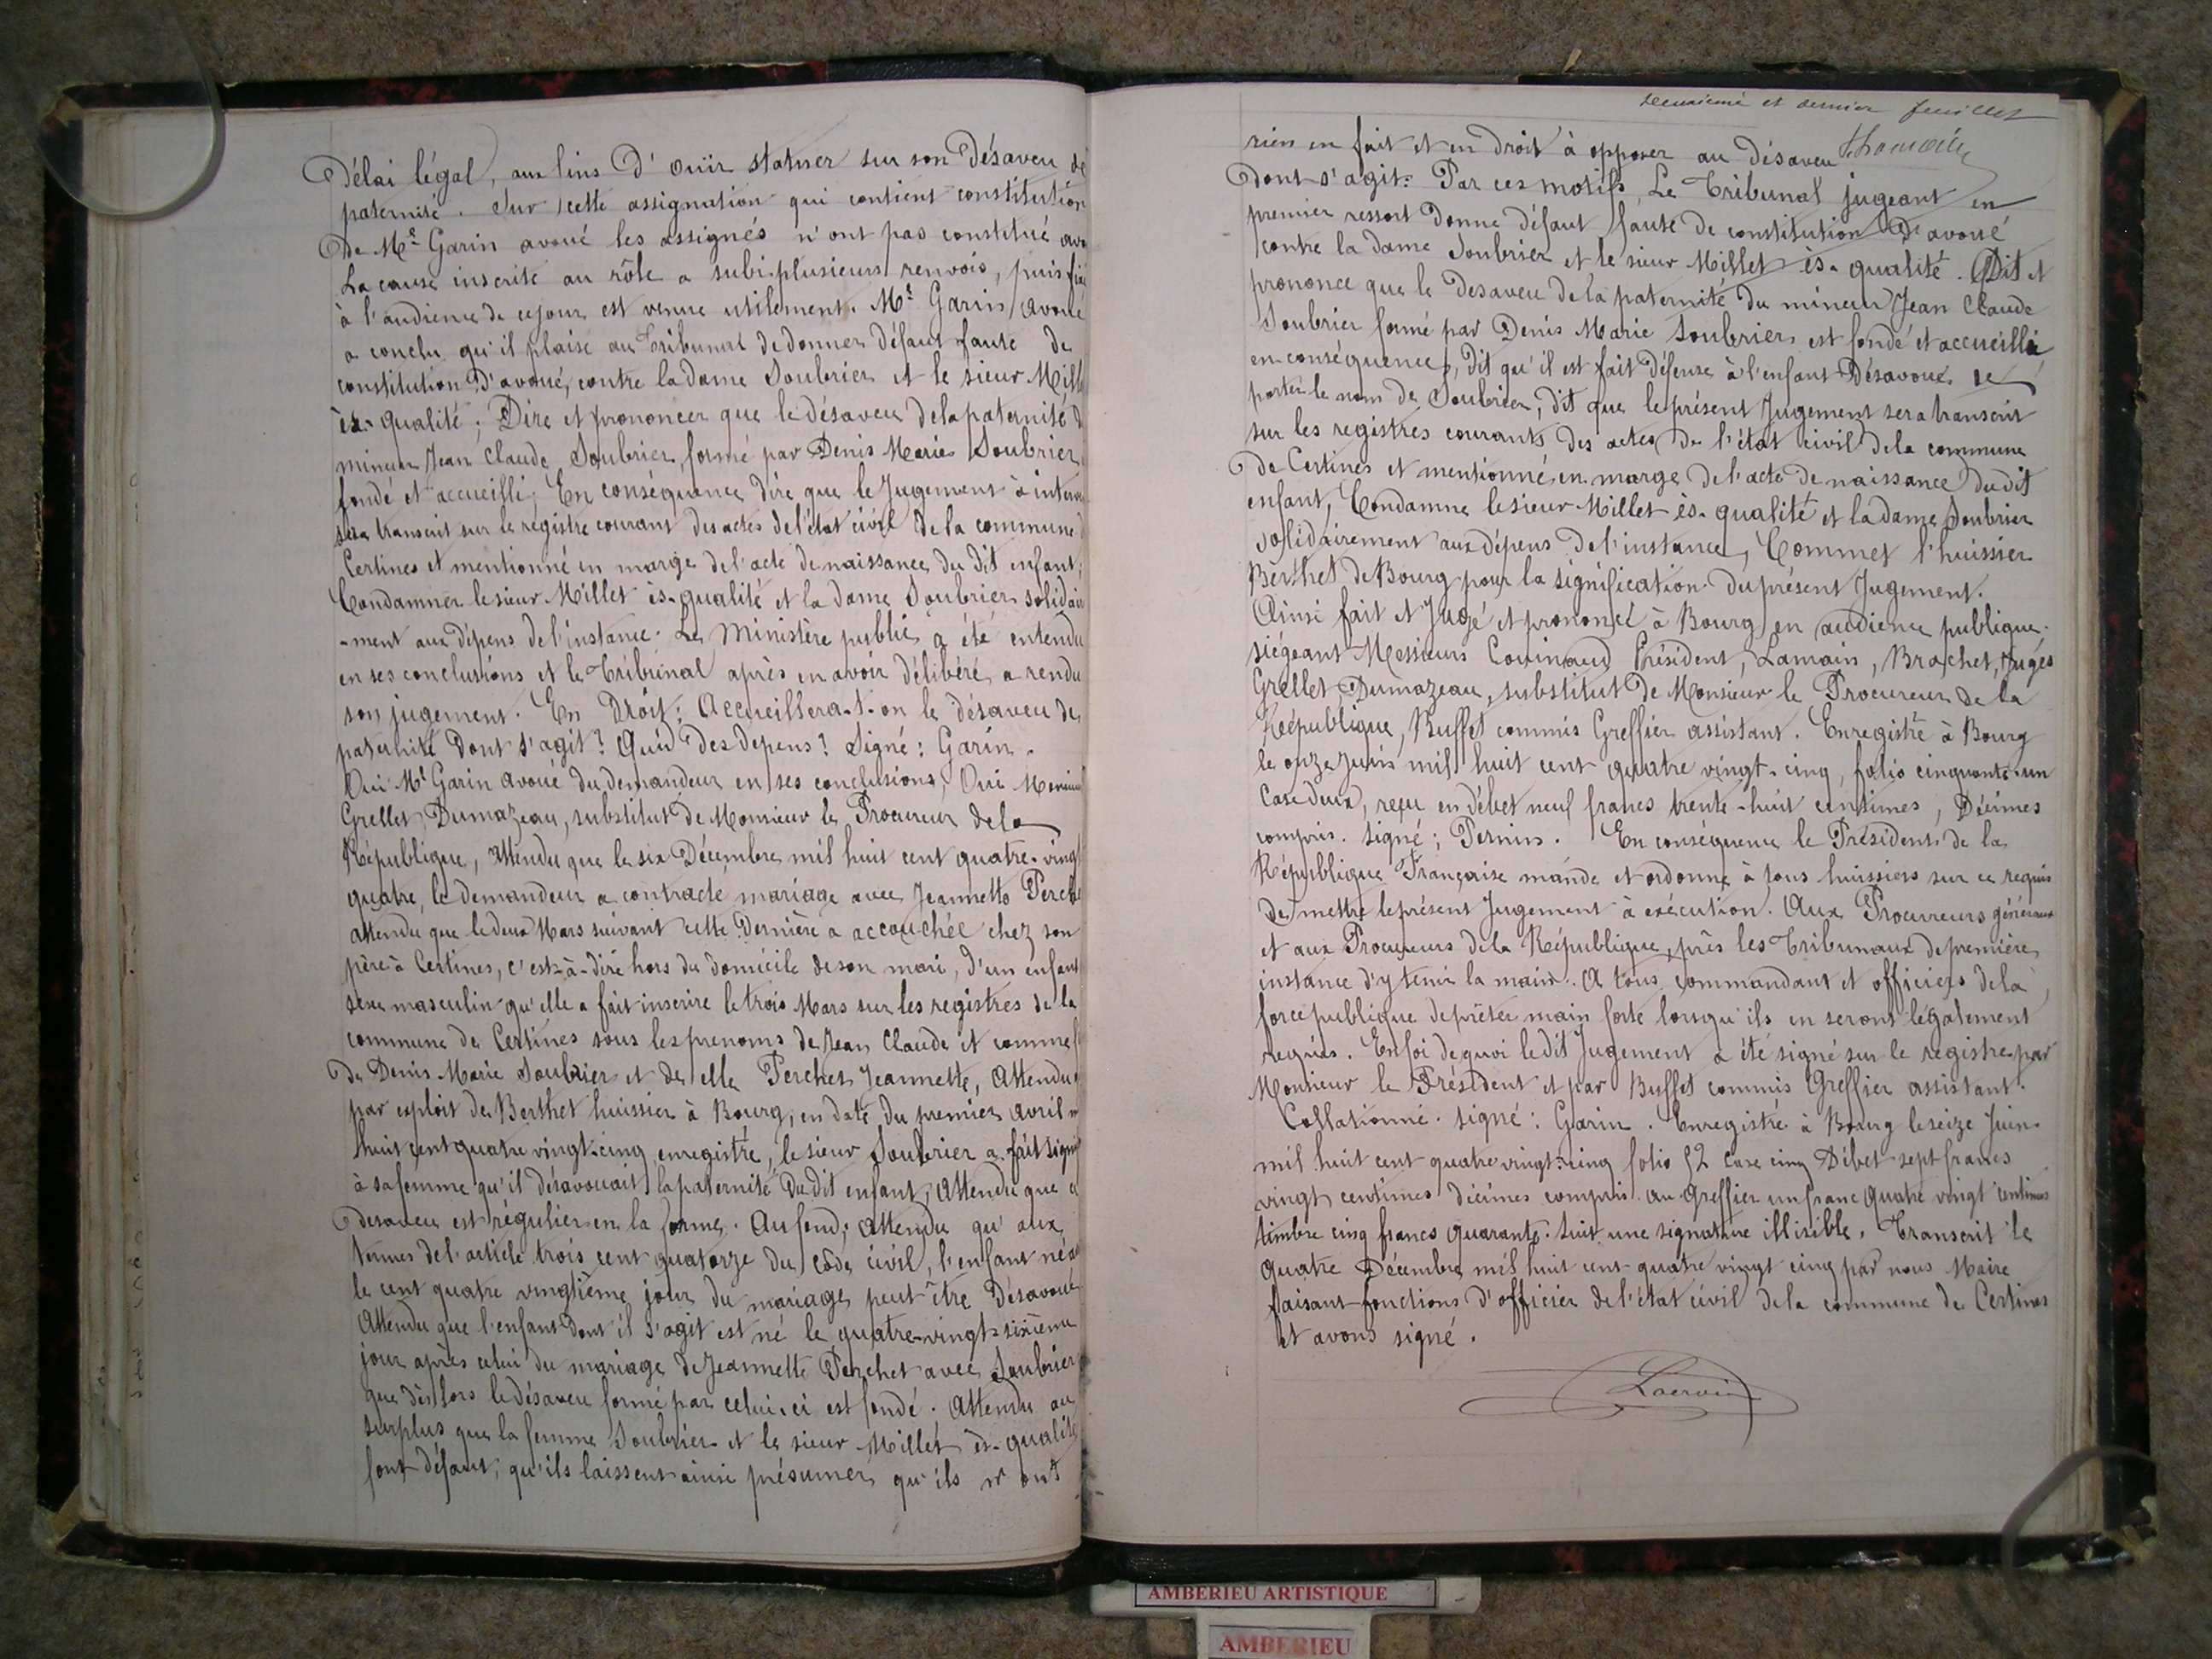 Délai légal, aux fins d'ouïr statuer sur son Désaveu de
paternité. Sur cette assignation qui contient constitution
de Me Garin avoué les assignés n'ont pas constitué
La cause inscrite au rôle a subi plusieurs renvois, puis
à l'audience de ce jour est venue utilement. Me Garin avoué
a conclu qu'il plaise au Tribunal de donner défaut faute de
constitution d'avoué, contre la dame Soubrier et le sieur
ès-qualité; Dire et prononcer que le désaveu de la paternité
mineur Jean Claude Soubrier, formé par Denis Marie Soubrier,
fondé et accueilli; En conséquence dire que le Jugement à
sera transcrit sur le registre courant des actes de l'état civil de la commune
Certines et mentionné en marge de l'acte de naissance du dit enfant;
Condamner le sieur Millet ès-qualité et la dame Soubrier
-ment aux dépens de l'instance. Le Ministère public a été entendu
en ses conclusions et le Tribunal après en avoir délibéré a rendu
son jugement. En Droit: Accueillera-t-on le désaveu de
paternité dont s'agit? Quid des depens? Signé: Garin.
Oui Me Garin avoué du demandeur en ses conclusions, Oui
Grellet Dumazeau, substitut de Monsieur le Procureur de la
République, Attendu que le six Décembre mil huit cent quatre-vingt
quatre, le demandeur a contracté mariage avec Jeannette
attendu que le deux Mars suivant cette Dernière a accouchée chez son
père à Certines, c'est-à-dire hors du domicile de son mari, d'un enfant
sexe masculin qu'elle a fait inscrire le trois Mars sur les registres de la
commune de Certines sous les prenoms de Jean Claude et comme
de Denis Marie Soubrier et de elle Perchet Jeannette, Attendu
par exploit de Berthet huissier à Bourg, en date du premier avril
huit cent quatre vingt-cinq enregistré, le sieur Soubrier a fait
à sa femme qu'il désavouait la paternité du dit enfant, Attendu que
Desaveu est régulier en la forme. Au fond; attendu qu'aux
termes de l'article trois cent quatorze du Code civil, l'enfant né
le cent quatre vingtième jour du mariage peut être Désavoué
Attendu que l'enfant dont il s'agit est né le quatre-vingt-sixième
jour après celui du mariage de Jeannette Perchet avec Soubrier
que dès lors le désaveu formé par celui-ci est fondé. Attendu au
surplus que la femme Soubrier et le sieur Millet ès-qualité
font défaut; qu'ils laissent ainsi présumer qu'ils n'ont
Deuxième et dernier feuillet
rien en fait et en droit à opposer au désaveu
dont s'agit. Par ces motifs, Le Tribunal jugeant en
premier ressort donne défaut faute de constitution d'avoué
contre la dame Soubrier et le sieur Millet ès-qualité. Dit et
prononce que le Desaveu de la paternité du mineur Jean Claude
Soubrier formé par Denis Marie Soubrier est fondé et accueilli
en conséquence, dit qu'il est fait défense à l'enfant Désavoué de
porter le nom de Soubrier, dit que le présent Jugement sera transcrit
sur les registres courants des actes de l'état civil de la commune
de Certines et mentionné en marge de l'acte de naissance du dit
enfant, Condamne le sieur Millet ès-qualité et la dame Soubrier
solidairement aux dépens de l'instance, Commet l'huissier
Berthet de Bourg pour la signification du présent Jugement.
Ainsi fait et Jugé et prononcé à Bourg en audience publique
siégeant Messieurs Couinaud Président, Lamain, Brachet, Juges
Grellet Dumazeau, substitut de Monsieur le Procureur de la
République, Buffet commis Greffier assistant. Enregistré à Bourg
le onze Juin mil huit cent quatre vingt-cinq, folio cinquante-un
Case deux, reçu en débet neuf francs trente-huit centimes, Décimes
compris. signé; Pernin. En conséquence le Président de la
République Française mande et ordonne à tous huissiers sur ce requis
de mettre le présent Jugement à exécution. Aux Procureurs généraux
et aux Procureurs de la République, près les Tribunaux de première
instance d'y tenir la main. A tous commandant et officiers de la
force publique de prêter main forte lorsqu'ils en seront légalement
requis. En foi de quoi le dit Jugement a été signé sur le registre par
Monsieur le Président et par Buffet commis Greffier assistant.
Collationné. signé: Garin. Enregistré à Bourg le seize Juin
mil huit cent quatre vingt-cinq folio 52 case cinq Débet sept francs
vingt centimes décimes compris. au Greffier un franc quatre vingt centimes
timbre cinq francs quarante. Suit une signature illisible. Transcrit le
quatre Décembre mil huit cent quatre vingt cinq par nous Maire
faisant fonctions d'officier de l'état civil de la commune de Certines
et avons signé.
AMBERIEU ARTISTIQUE
AMBERIEU